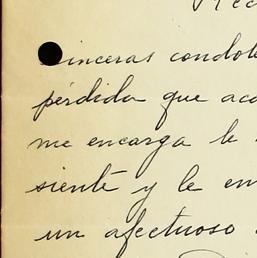 inceras condole
pérdida que aca
me encarga le
siente y le en
un afectuoso